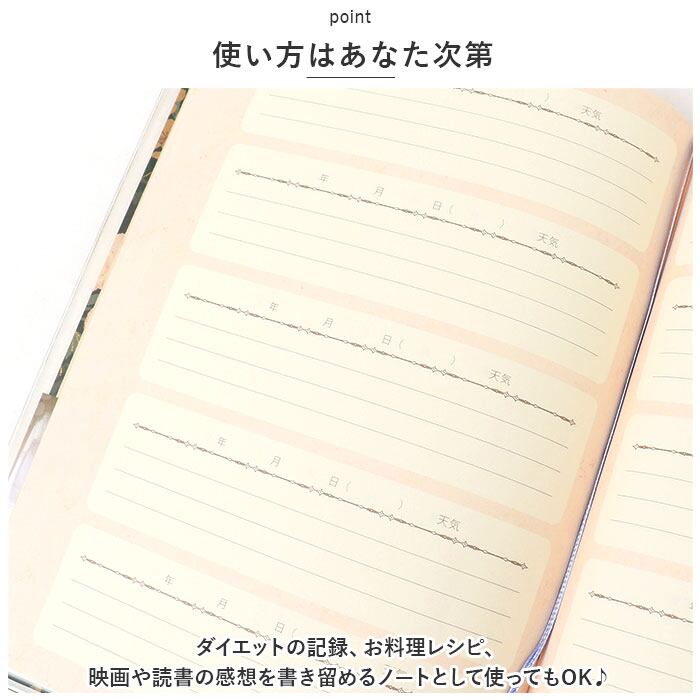 point
使い方はあなた次第
） 天気
年 月 日（ ） 天気
年 月 日（ ） 天気
年 月 日（ ） 天気
年 月 日（
ダイエットの記録、お料理レシピ、
映画や読書の感想を書き留めるノートとして使ってもOK♪